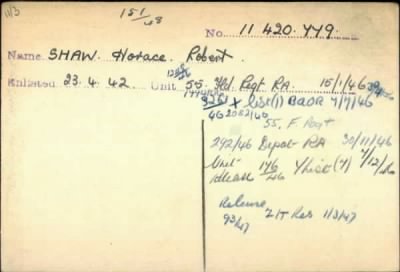 11/3
151/48
No. 11 420.779.
Name SHAW. Horace. Robert.
Enlisted 23.4.42. Unit 55. Fld Regt RA. 15/1/46
X list (1) BAOR 7/7/46
55. F. Regt
242/46 Depot RA 30/11/46
Unit 176/46 Y List (7) 7/12/46
Release 93/47 Z/T Res 1/3/47